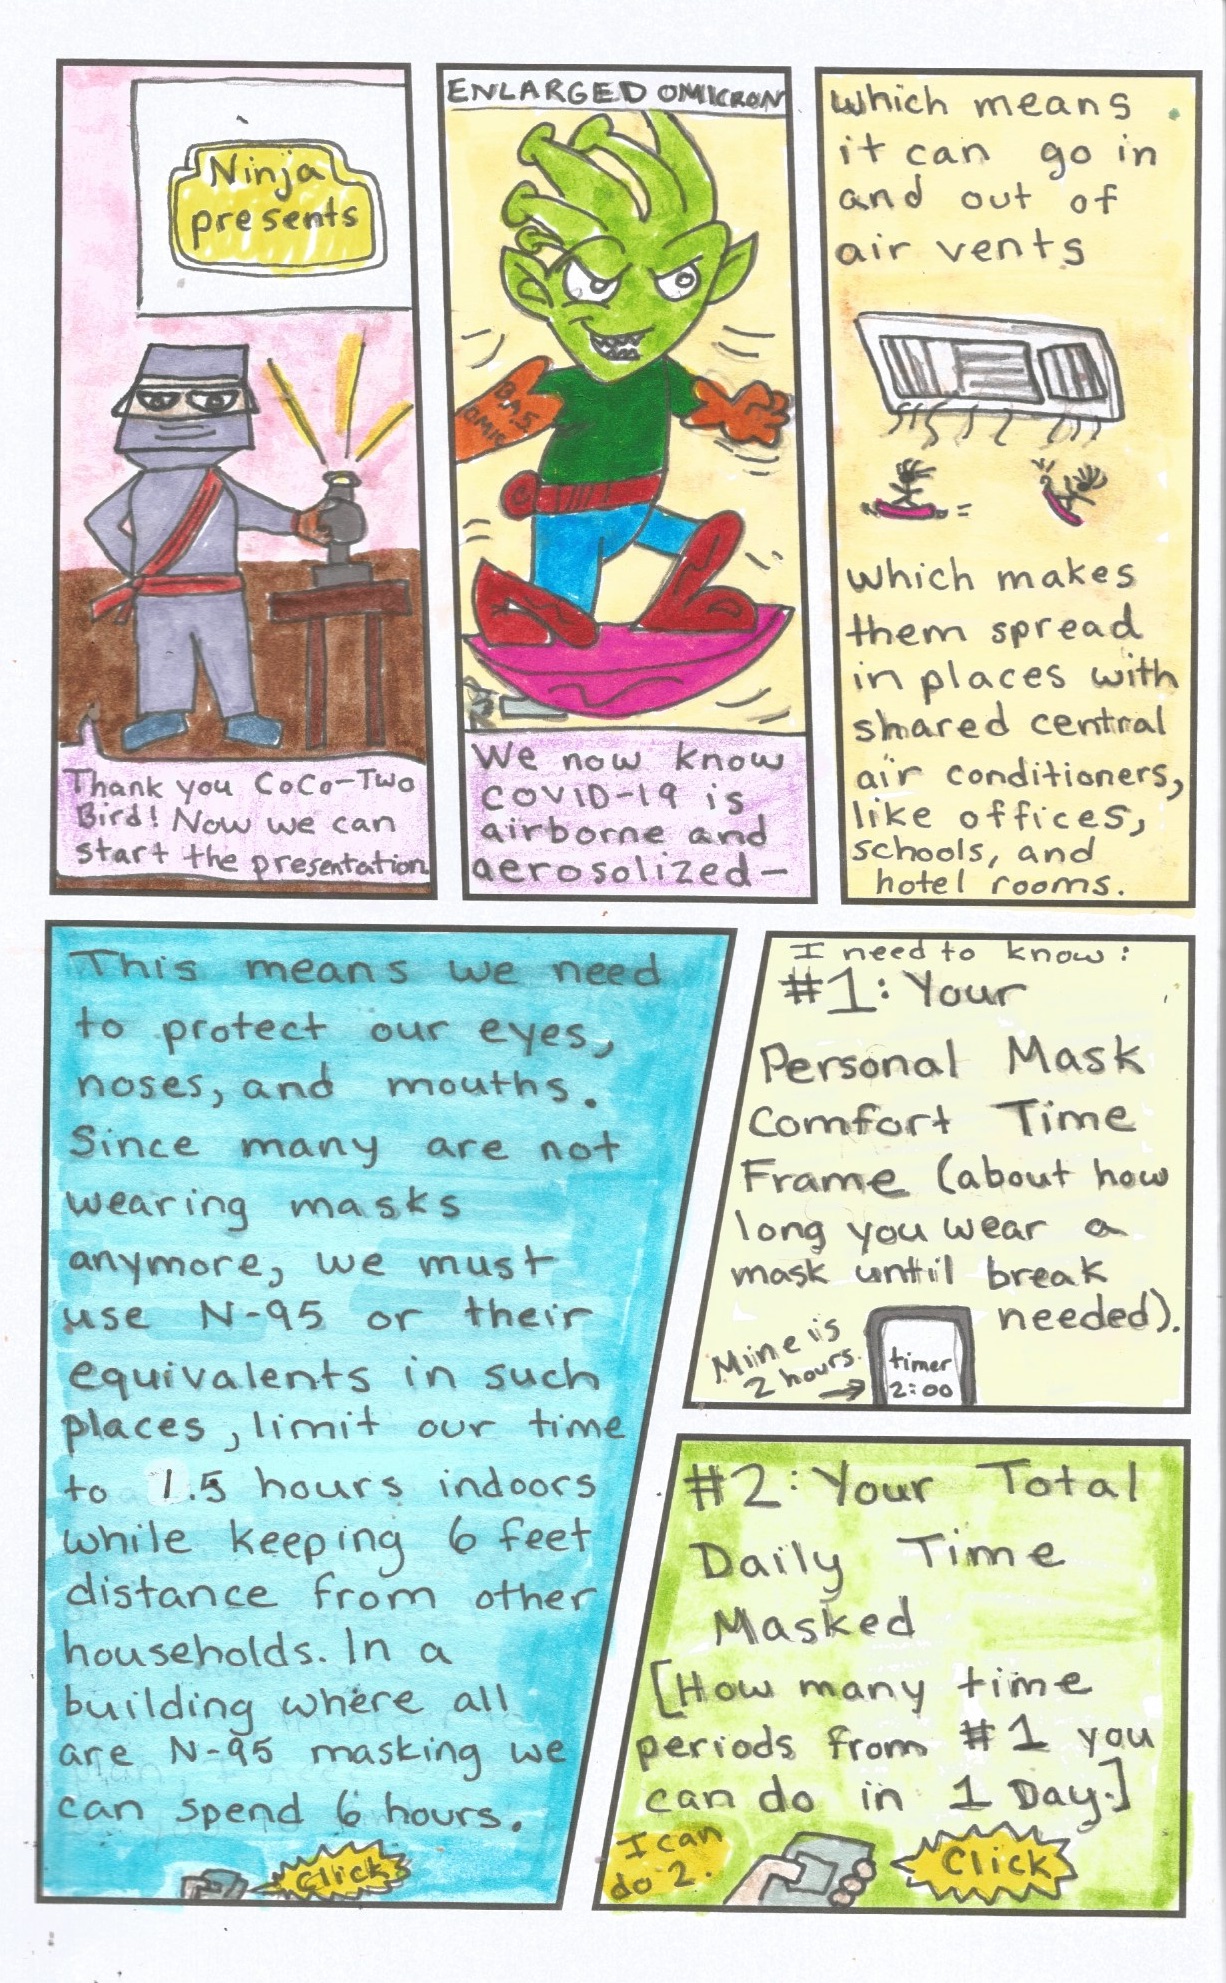 Ninja
presents
Thank you CoCo-Two
Bird! Now we can
start the presentation
ENLARGED OMICRON
B.A.5.
OMIC
We now know
COVID-19 is
airborne and
aerosolized—
which means
it can go in
and out of
air vents
=
which makes
them spread
in places with
shared central
air conditioners,
like offices,
schools, and
hotel rooms.
This means we need
to protect our eyes,
noses, and mouths.
Since many are not
wearing masks
anymore, we must
use N-95 or their
equivalents in such
places, limit our time
to 1.5 hours indoors
while keeping 6 feet
distance from other
households. In a
building where all
are N-95 masking we
can spend 6 hours.
Click
I need to know:
#1: Your
Personal Mask
Comfort Time
Frame (about how
long you wear a
mask until break
needed).
Mine is
2 hours.
timer
2:00
#2: Your Total
Daily Time
Masked
[How many time
periods from #1 you
can do in 1 Day.]
I can
do 2.
Click